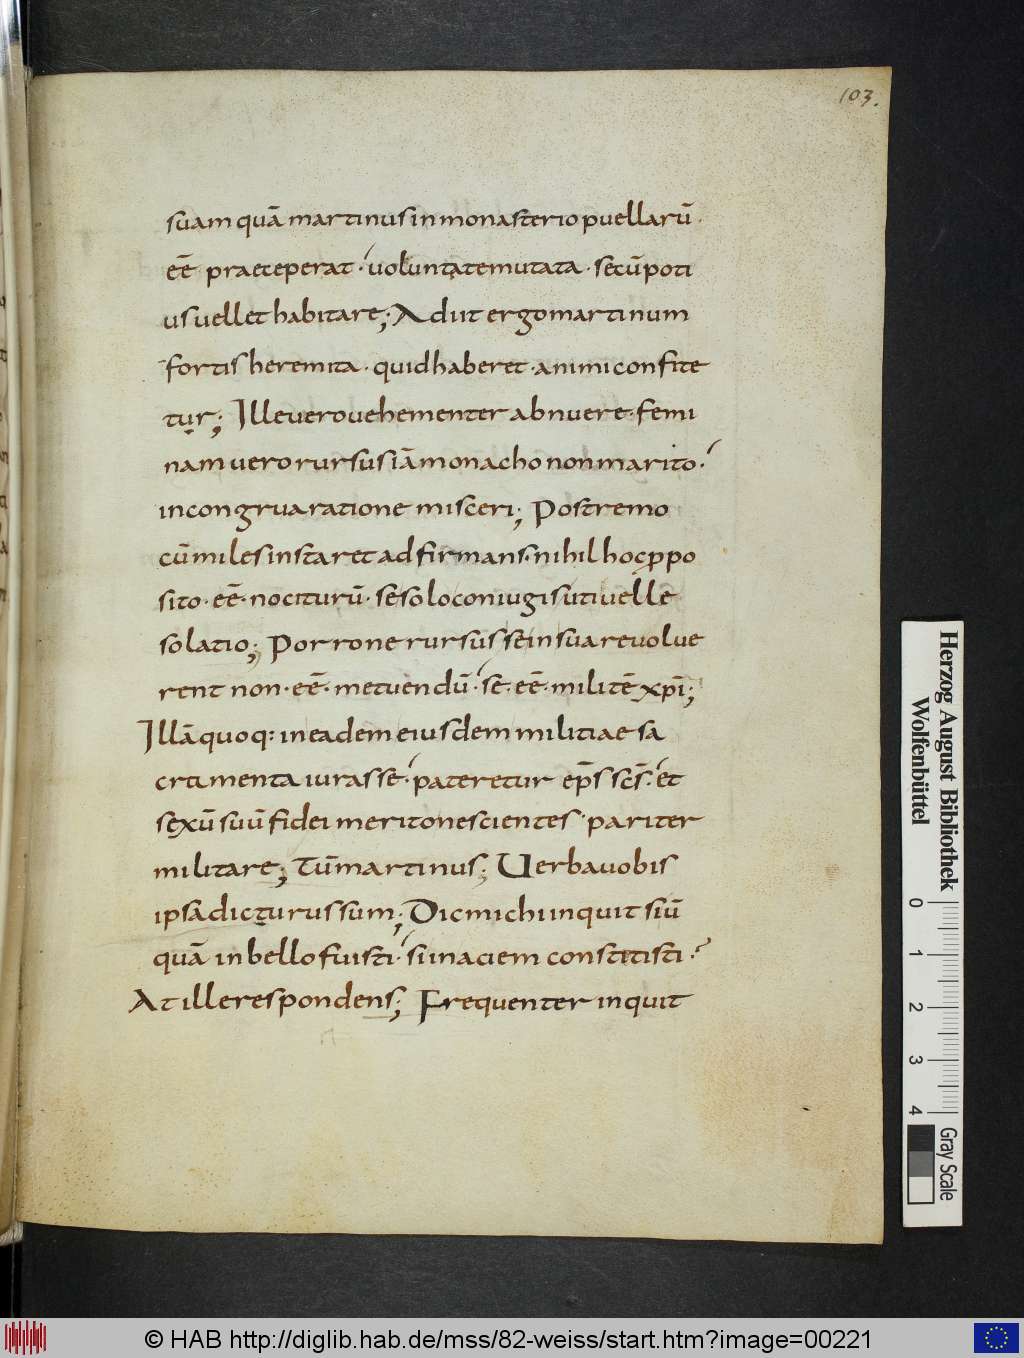 103.
suam quā martinus in monasterio puellarū
eē praeceperat · uoluntate mutata · secū poti
us uellet habitare; Adiit ergo martinum
fortis heremita · quid haberet · animi confite
tur; Ille uero uehementer abnuere · femi
nam uero rursus iā monacho non marito ·
incongrua ratione misceri; Postremo
cū miles instaret adfirmans · nihil hoc ꝓpo
sito · eē · nociturū · se solo coniugis uti uelle
solatio; Porro ne rursus se in sua reuolue
rent non · eē · metuendū · se · eē · militē xp̄i;
Illā quoq: in eadem eiusdem militiae sa
cramenta iurasse · pateretur ep̄s sc̄s · et
sexū suū fidei merito nescientes · pariter
militare; Tū martinus; Uerba uobis
ipsa dicturus sum; Dic michi inquit si ū
quā in bello fuisti · si in aciem constetisti ·
At ille respondens; Frequenter inquit
Herzog August Bibliothek
Wolfenbüttel
0 1 2 3 4
Gray Scale
© HAB http://diglib.hab.de/mss/82-weiss/start.htm?image=00221